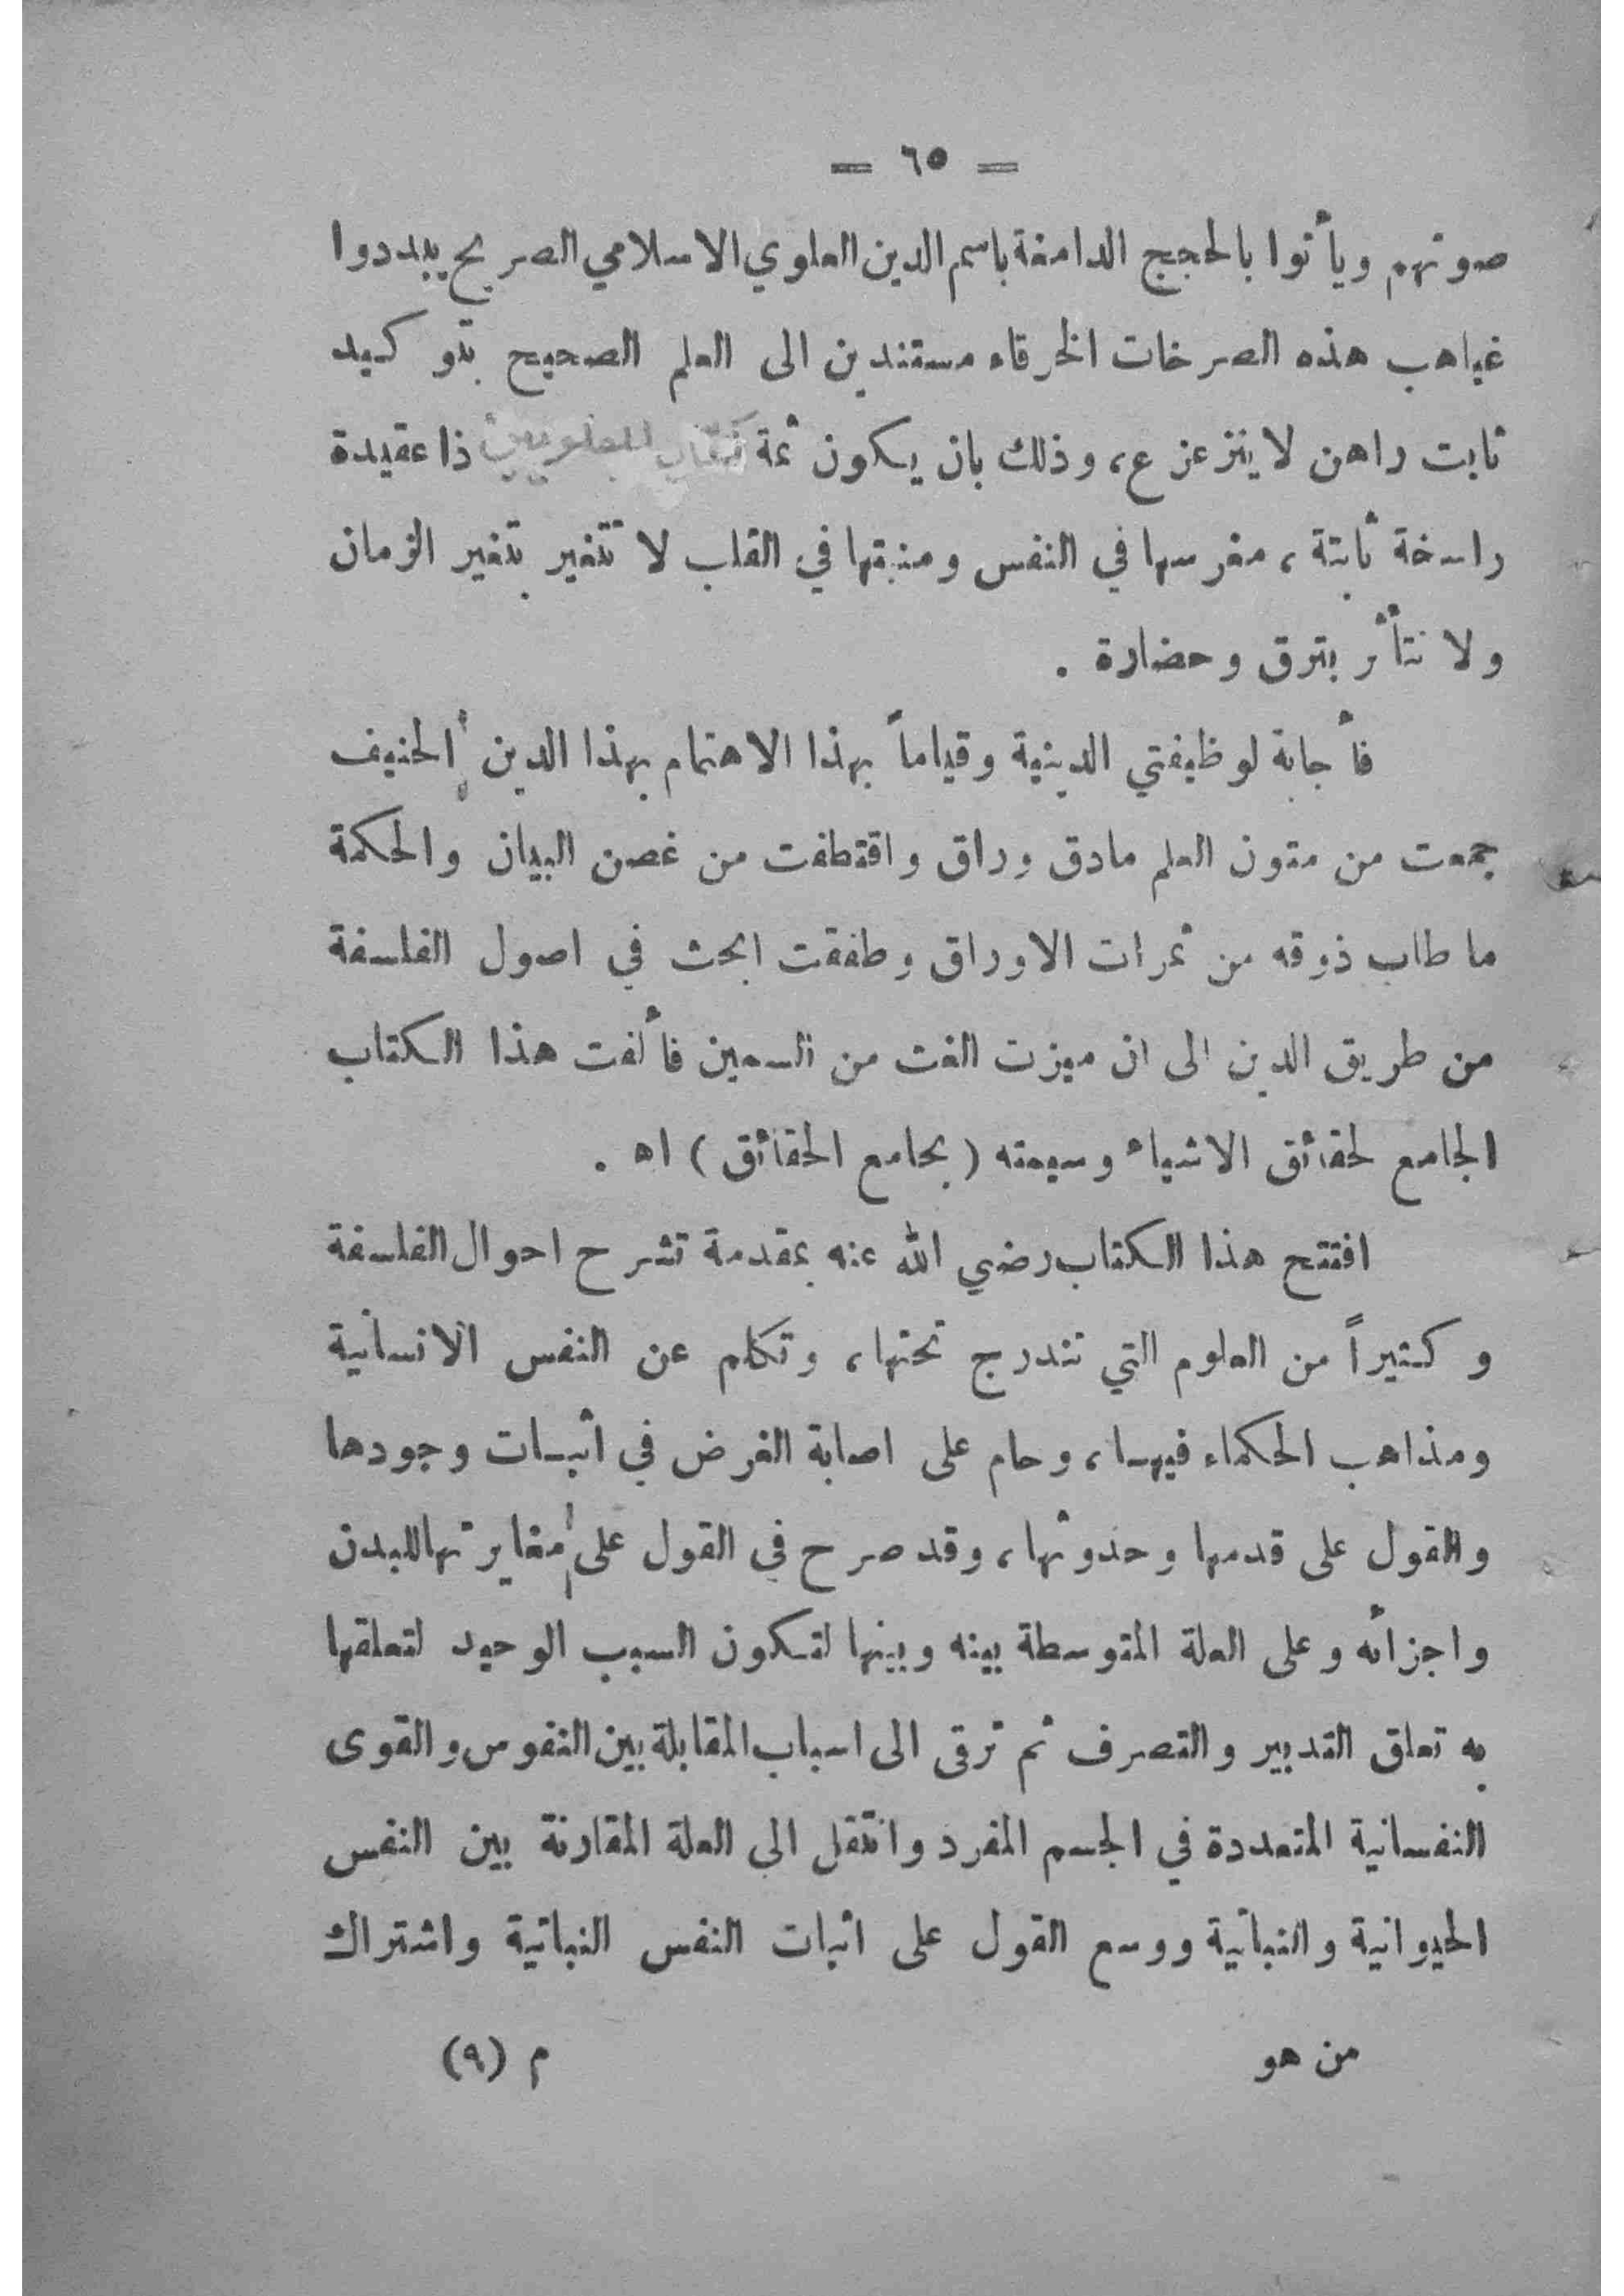 = ٦٥ =
صوتهم ويأتوا بالحجج الدامغة باسم الدين العلوي الاسلامي الصريح يبددوا
غياهب هذه الصرخات الخرقاء مستندين الى العلم الصحيح بتوكيد
ثابت راهن لا يتزعزع، وذلك بان يكون ثمة ذا عقيدة
راسخة ثابتة، مغرسها في النفس ومنبتها في القلب لا تتغير بتغير الزمان
ولا نتأثر بترق وحضارة .
فأجابة لوظيفتي الدينية وقياماً بهذا الاهتمام بهذا الدين الحنيف
جمعت من متون العلم مادق وراق واقتطفت من غصن البيان والحكمة
ما طاب ذوقه من ثمرات الاوراق وطفقت ابحث في اصول الفلسفة
من طريق الدين الى ان ميزت الغث من السمين فألفت هذا الكتاب
الجامع لحقائق الاشياء وسميته (بجامع الحقائق) اه .
افتتح هذا الكتاب رضي الله عنه بمقدمة تشرح احوال الفلسفة
وكثيراً من العلوم التي تندرج تحتها، وتكلم عن النفس الانسانية
ومذاهب الحكماء فيها، وحام على اصابة الغرض في اثبات وجودها
والقول على قدمها وحدوثها، وقد صرح في القول على مغايرتها للبدن
واجزائه وعلى العلة المتوسطة بينه وبينها لتكون السبب الوحيد لتعلقها
به تعلق التدبير والتصرف ثم ترقى الى اسباب المقابلة بين النفوس والقوى
النفسانية المتعددة في الجسم المفرد وانتقل الى العلة المقارنة بين النفس
الحيوانية والنباتية ووسع القول على اثبات النفس النباتية واشتراك
من هو م (٩)